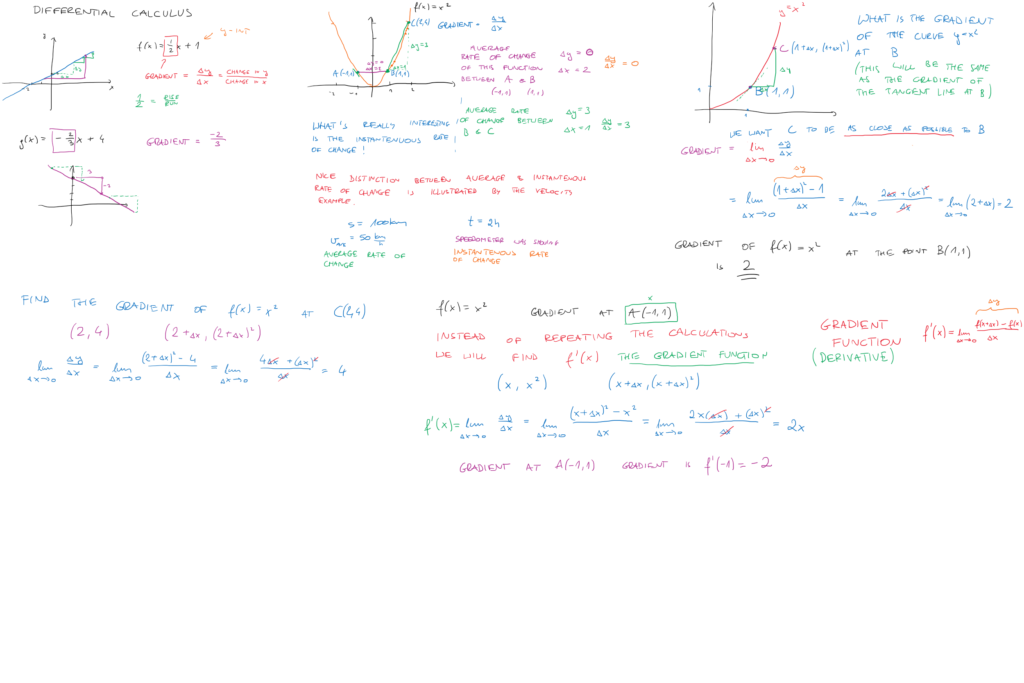 DIFFERENTIAL CALCULUS
f(x) = 1/2 x + 1
GRADIENT = Δy/Δx = CHANGE IN y / CHANGE IN x
1/2 = RISE/RUN
g(x) = -2/3 x + 4
GRADIENT = -2/3
3
-2
f(x) = x²
C(2,4)
GRADIENT = Δy/Δx
Δy=3
A(-1,1)
B(1,1)
AVERAGE
RATE OF CHANGE
OF THIS FUNCTION
BETWEEN A & B
(-1,1) (1,1)
Δy = 0
Δx = 2
Δy/Δx = 0
AVERAGE RATE
OF CHANGE BETWEEN
B & C
Δy = 3
Δx = 1
Δy/Δx = 3
WHAT'S REALLY INTERESING
IS THE INSTANTENUOUS RATE
OF CHANGE!
NICE DISTINCTION BETWEEN AVERAGE & INSTANTENOUS
RATE OF CHANGE IS ILLUSTRATED BY THE VELOCITY
EXAMPLE.
s = 100km
t = 2h
V AVG = 50 km/h
AVERAGE RATE OF
CHANGE
SPEEDOMETER WAS SHOWING
INSTANTENOUS RATE
OF CHANGE
y=x²
C(1+Δx, (1+Δx)²)
Δy
B(1,1)
WHAT IS THE GRADIENT
OF THE CURVE y=x²
AT B
(THIS WILL BE THE SAME
AS THE GRADIENT OF
THE TANGENT LINE AT B)
WE WANT C TO BE AS CLOSE AS POSSIBLE TO B
GRADIENT = lim Δx→0 Δy/Δx
Δy
= lim Δx→0 ((1+Δx)²-1)/Δx = lim Δx→0 (2Δx+(Δx)²)/Δx = lim Δx→0 (2+Δx) = 2
GRADIENT OF f(x) = x² AT THE POINT B(1,1)
IS 2
FIND THE GRADIENT OF f(x) = x² AT C(2,4)
(2,4) (2+Δx, (2+Δx)²)
lim Δx→0 Δy/Δx = lim Δx→0 ((2+Δx)²-4)/Δx = lim Δx→0 (4Δx+(Δx)²)/Δx = 4
x
f(x) = x² GRADIENT AT A(-1,1)
INSTEAD OF REPEATING THE CALCULATIONS
WE WILL FIND f'(x) THE GRADIENT FUNCTION
(x, x²) (x+Δx, (x+Δx)²)
f'(x) = lim Δx→0 Δy/Δx = lim Δx→0 ((x+Δx)²-x²)/Δx = lim Δx→0 (2x(Δx)+(Δx)²)/Δx = 2x
GRADIENT AT A(-1,1) GRADIENT IS f'(-1) = -2
GRADIENT
FUNCTION
(DERIVATIVE)
Δy
f'(x) = lim Δx→0 (f(x+Δx)-f(x))/Δx